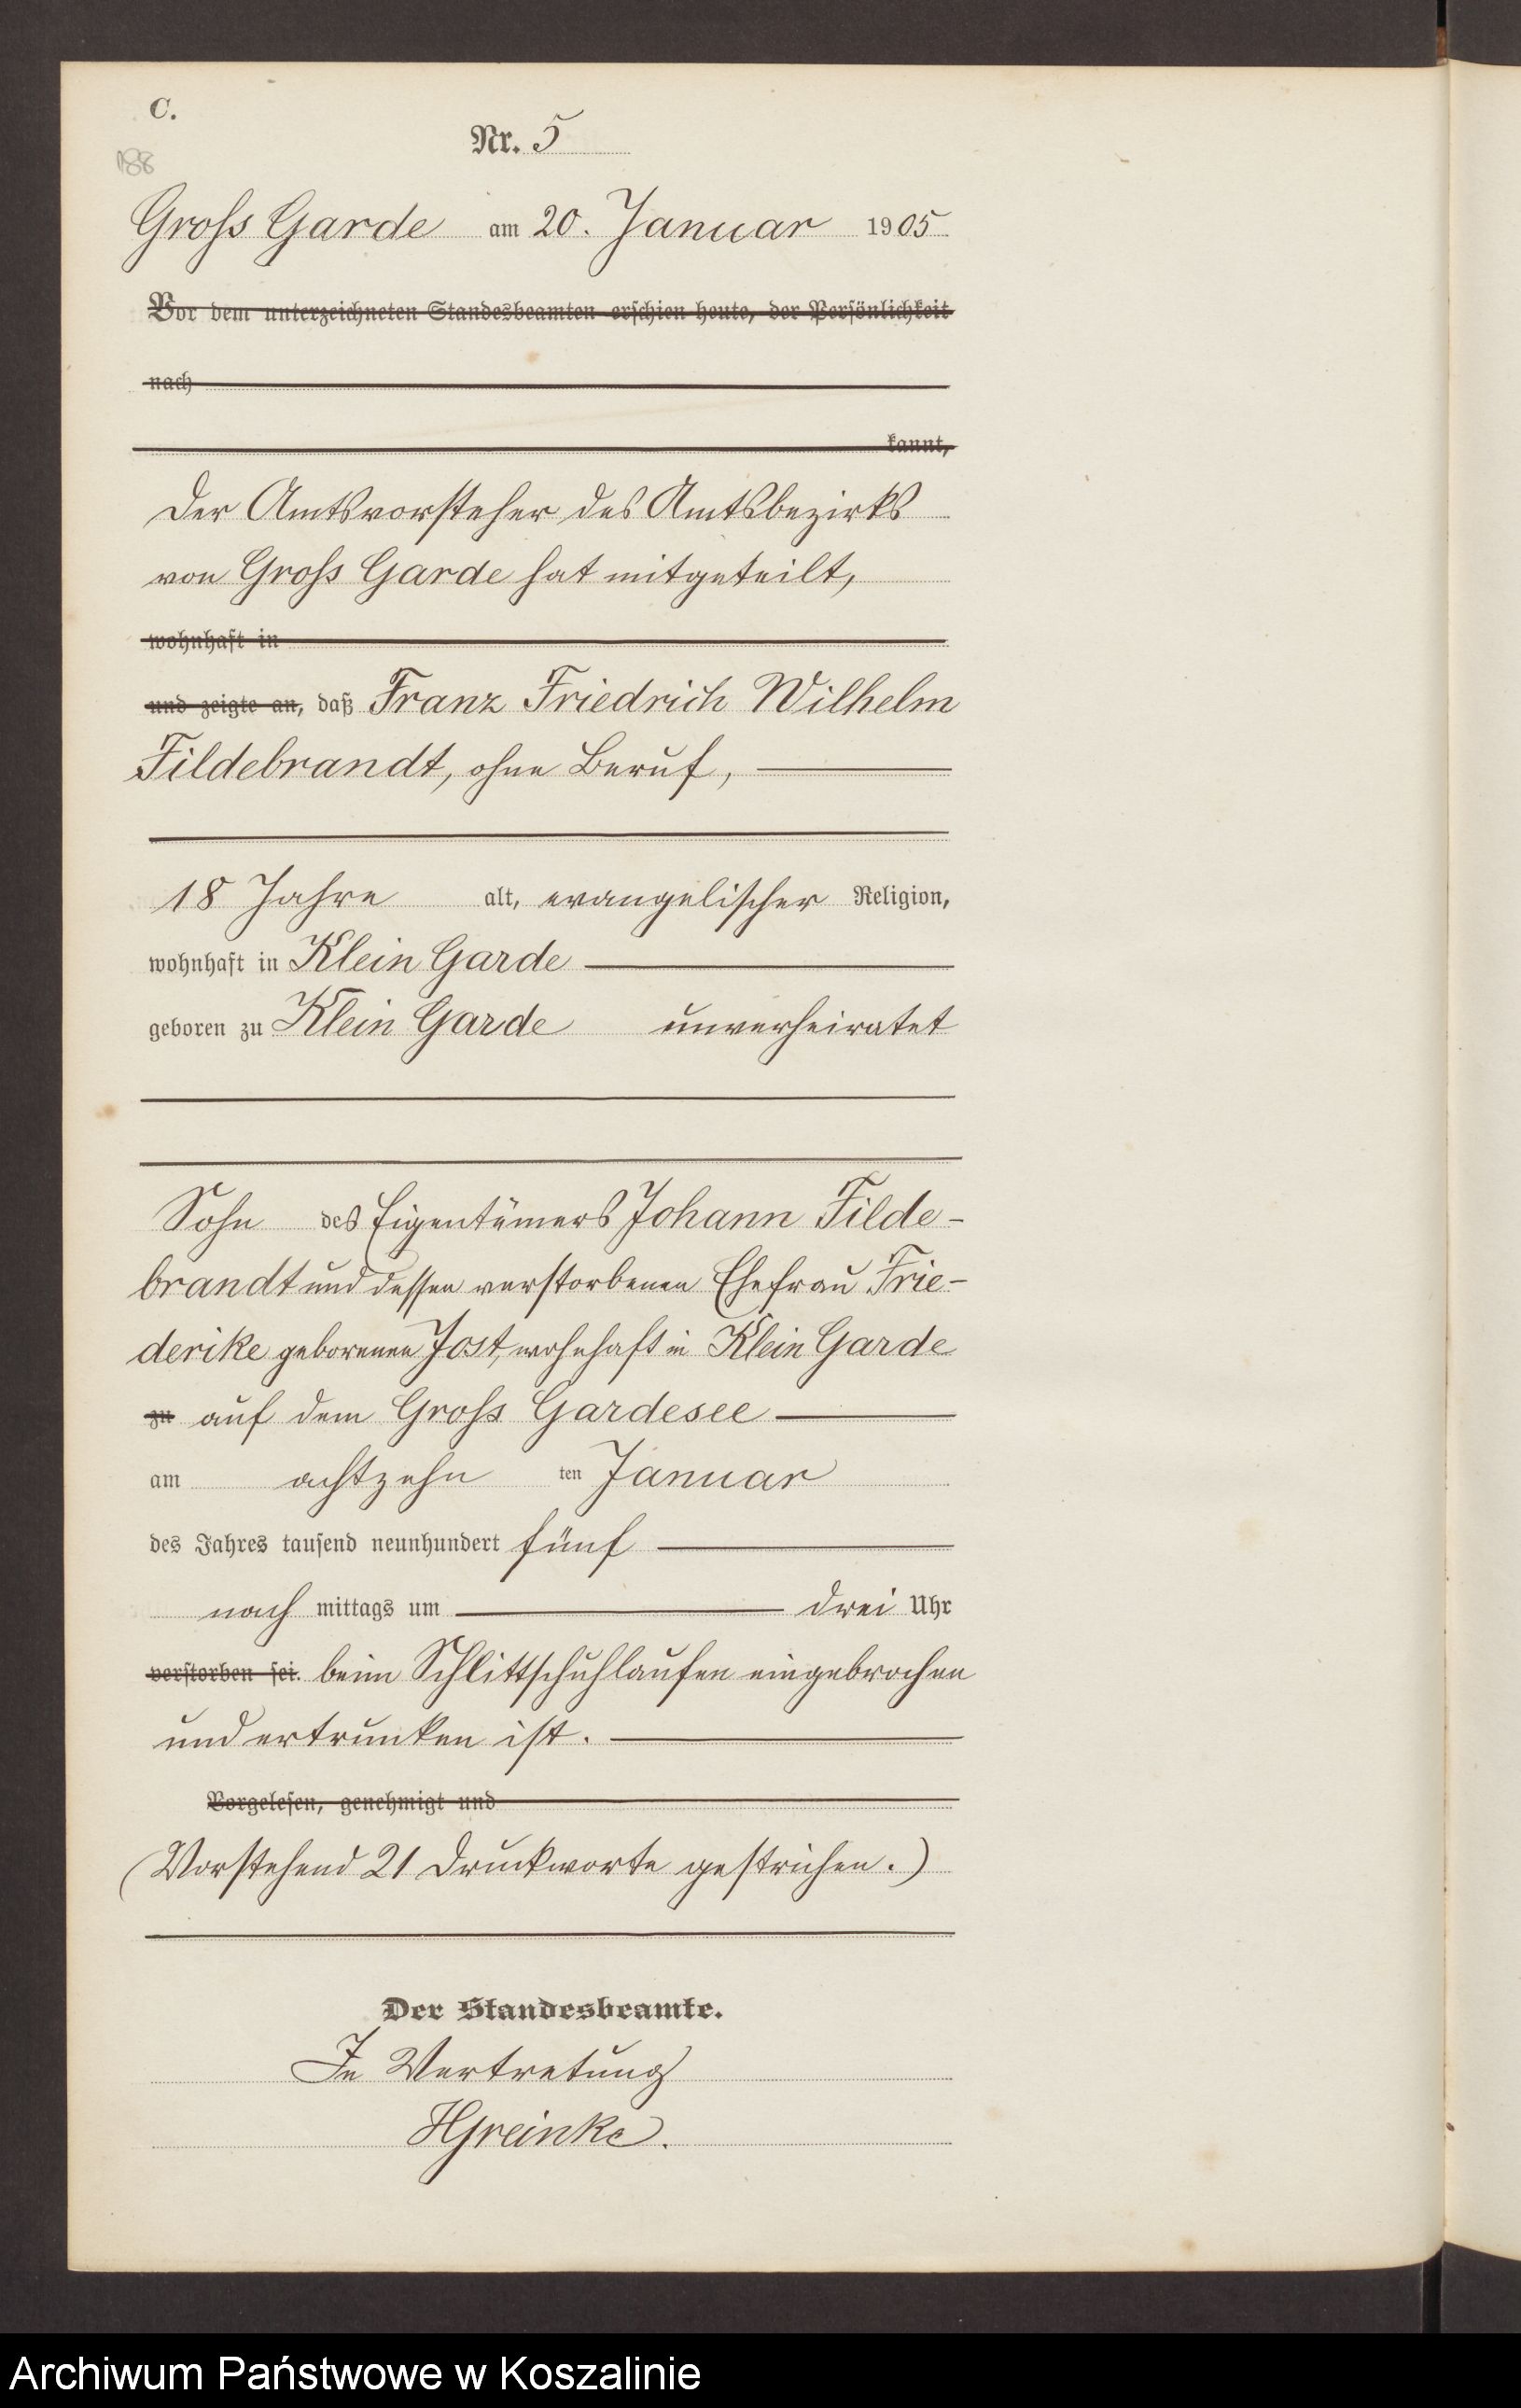 C.
Nr. 5
188
Gross Garde am 20. Januar 1905
Vor dem unterzeichneten Standesbeamten erschien heute, der Persönlichkeit
nach
kannt,
Der Amtsvorsteher des Amtsbezirks
von Gross Garde hat mitgeteilt,
wohnhaft in
und zeigte an, daß Franz Friedrich Wilhelm
Fildebrandt, ohne Beruf,
18 Jahre alt, evangelischer Religion,
wohnhaft in Klein Garde
geboren zu Klein Garde unverheiratet
Sohn des Eigentümers Johann Filde-
brandt und dessen verstorbenen Ehefrau Frie-
derike geborenen Jost, wohnhaft in Klein Garde
zu auf dem Gross Gardesee
am achtzehn ten Januar
des Jahres tausend neunhundert fünf
nach mittags um drei Uhr
verstorben sei. beim Schlittschuhlaufen eingebrochen
und ertrunken ist.
Vorgelesen, genehmigt und
(Vorstehend 21 Druckworte gestrichen.)
Der Standesbeamte.
In Vertretung
HGreinke.
Archiwum Państwowe w Koszalinie